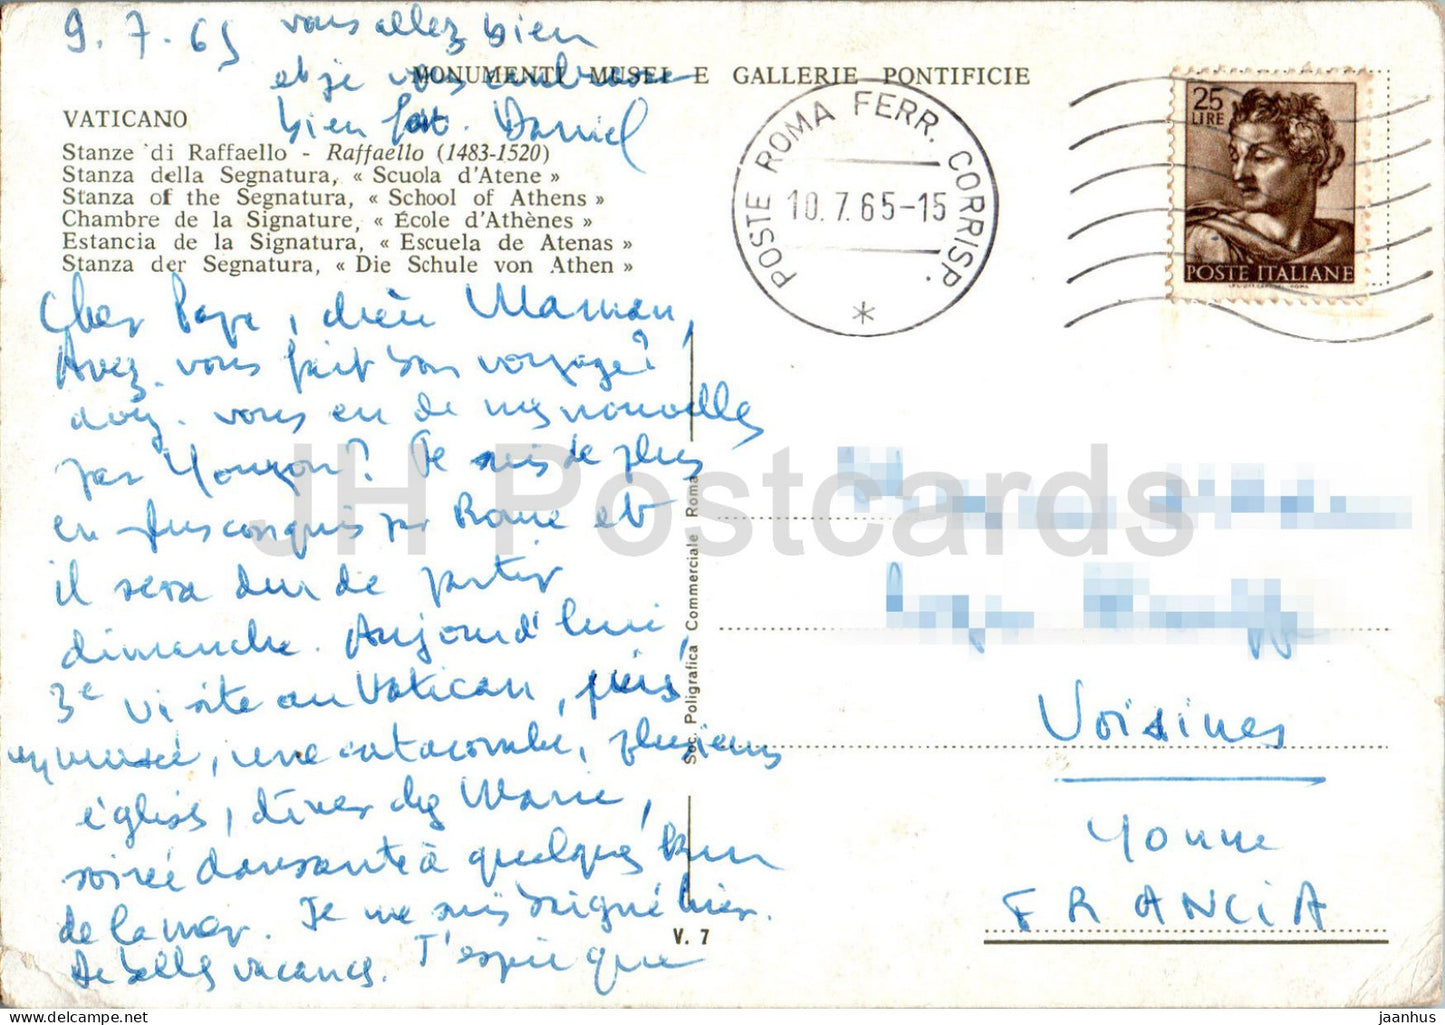 9.7.65
vous allez bien
et je vous embrasse
bien fort. Daniel
MONUMENTI MUSEI E GALLERIE PONTIFICIE
VATICANO
Stanze di Raffaello - Raffaello (1483-1520)
Stanza della Segnatura, « Scuola d'Atene »
Stanza of the Segnatura, « School of Athens »
Chambre de la Signature, « École d'Athènes »
Estancia de la Signatura, « Escuela de Atenas »
Stanza der Segnatura, « Die Schule von Athen »
POSTE ROMA FERR. CORRISP.
10.7.65-15
25
LIRE
POSTE ITALIANE
Cher Papa, chère Maman,
Avez-vous fait bon voyage?
avez-vous eu de mes nouvelles
par ? Je suis de plus
en plus conquis par Rome et
il sera dur de partir
dimanche. Aujourd'hui,
3e visite au Vatican, puis
un musée, une catacombe, plusieurs
églises, dîner chez Marie,
soirée dansante à quelques km
de la mer. Je me suis baigné hier.
De belles vacances. J'espère que
Soc. Poligrafica Commerciale Roma
V. 7
Voisines
Yonne
FRANCIA
JH Postcards
jaanhus